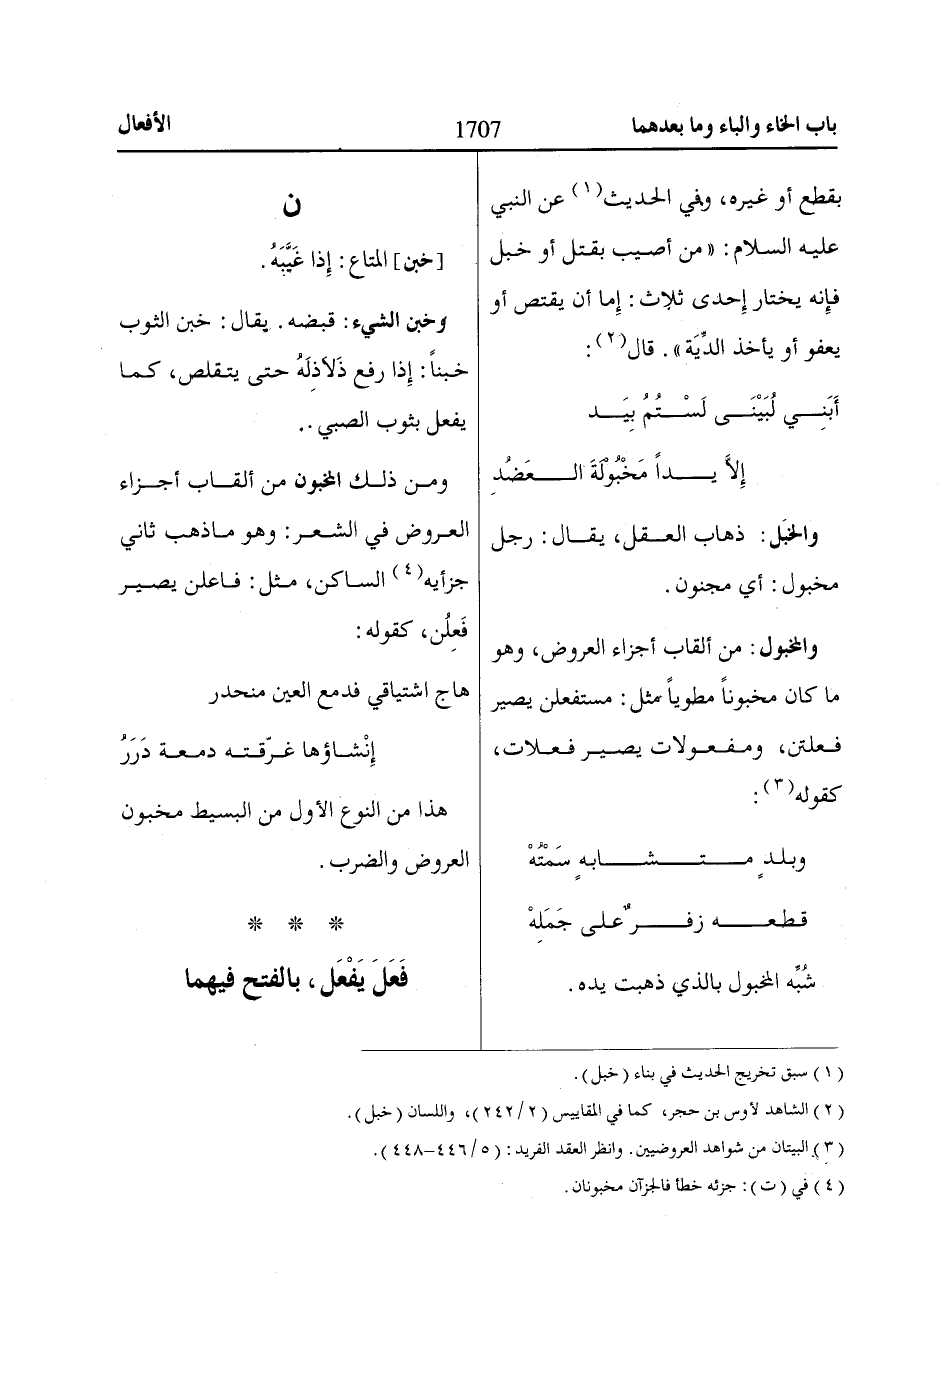 باب الخاء والباء وما بعدهما 1707 الأفعال
بقطع أو غيره، وفي الحديث(١) عن النبي
عليه السلام: «من أصيب بقتل أو خبل
فإنه يختار إحدى ثلاث: إما أن يقتص أو
يعفو أو يأخذ الدِّيَة». قال(٢):
أَبَنِـي لُبَيْنَـى لَسْـتُمُ بِيَـد
إِلاَّ يـداً مَخْبُولَةَ العَضُدِ
والخَبَل: ذهاب العقل، يقال: رجل
مخبول: أي مجنون.
والمخبول: من ألقاب أجزاء العروض، وهو
ما كان مخبوناً مطوياً مثل: مستفعلن يصير
فعلتن، ومفعولات يصير فعلات،
كقوله(٣):
وبلدٍ متشابهٍ سَمْتُهْ
قطعه زفرٌ على جَمَلِهْ
شُبِّه المخبول بالذي ذهبت يده.
ن
[خبن] المتاع: إذا غَيَّبَهُ.
وخبن الشيء: قبضه. يقال: خبن الثوب
خبناً: إذا رفع ذَلاَذلَهُ حتى يتقلص، كما
يفعل بثوب الصبي..
ومن ذلك المخبون من ألقاب أجزاء
العروض في الشعر: وهو ماذهب ثاني
جزأيه(٤) الساكن، مثل: فاعلن يصير
فَعِلُن، كقوله:
هاج اشتياقي فدمع العين منحدر
إِنْشاؤها غرّقته دمعة دَرَرُ
هذا من النوع الأول من البسيط مخبون
العروض والضرب.
* * *
فَعَلَ يَفْعَل، بالفتح فيهما
(١) سبق تخريج الحديث في بناء (خبل).
(٢) الشاهد لأوس بن حجر، كما في المقاييس (٢/٢٤٢)، واللسان (خبل).
(٣) البيتان من شواهد العروضيين. وانظر العقد الفريد: (٥/٤٤٦-٤٤٨).
(٤) في (ت): جزئه خطأ فالجزآن مخبونان.